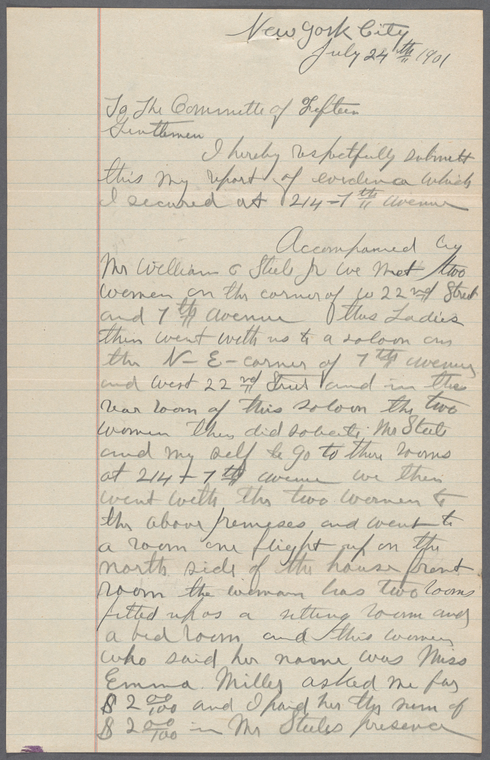 New York City
July 24th 1901
To The Committe of Fifteen
Gentlemen
I hereby respectfully submitt
this my report of evidence which
I secured at 214-7th Avenue
Accompanied by
Mr William C Steele Jr we met two
women on the corner of W 22nd Street
and 7th Avenue this Ladies
then went with us to a saloon on
the N-E-corner of 7th Avenue
and West 22nd Street and in the
rear room of this saloon the two
women then did solicite Mr Steele
and my self to go to there rooms
at 214-7th avenue we then
went with the two women to
the above premeses and went to
a room one flight up on the
north side of the house front
room the woman has two rooms
fitted up as a sitting room and
a bed room and this women
who said her name was Miss
Emma Miller asked me for
$ 2 00/100 and I paid her the sum of
$ 2 00/100 in Mr Steeles presence